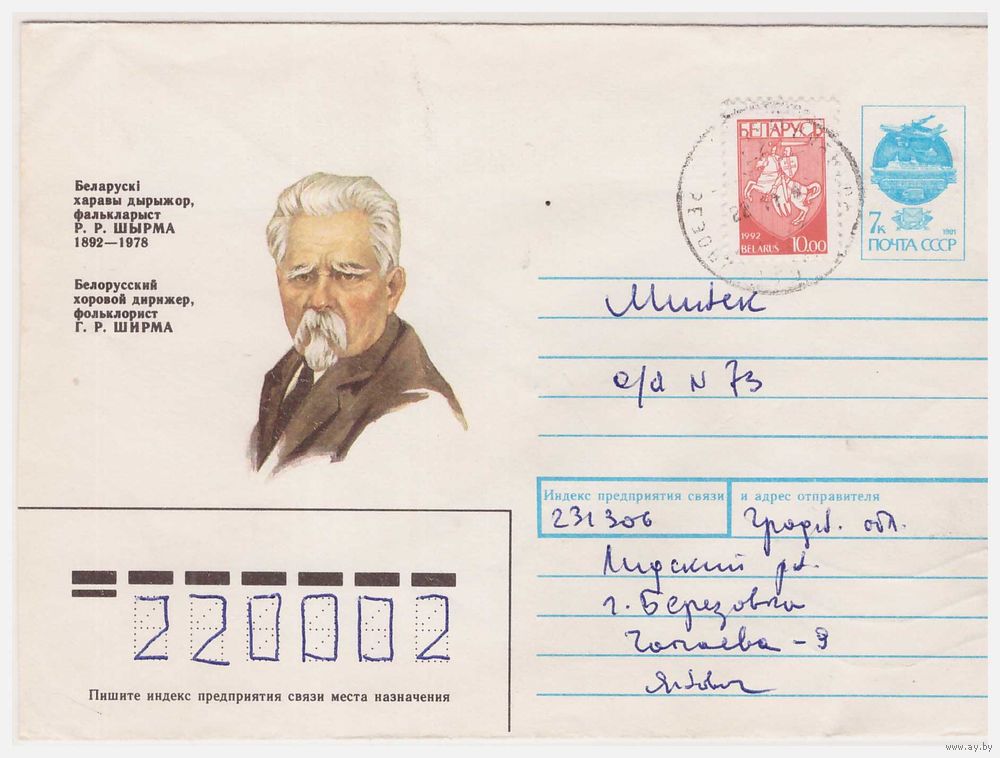 Беларускі
харавы дырыжор,
фалькларыст
Р. Р. ШЫРМА
1892—1978
Белорусский
хоровой дирижер,
фольклорист
Г. Р. ШИРМА
БЕЛАРУСЬ
1992
BELARUS 10.00
7к 1991
ПОЧТА СССР
Минск
а/я N 73
Индекс предприятия связи и адрес отправителя
231306 Гродн. обл.
Лидский р-н.
г. Березовка
Чапаева - 9
220002
Пишите индекс предприятия связи места назначения
www.ay.by